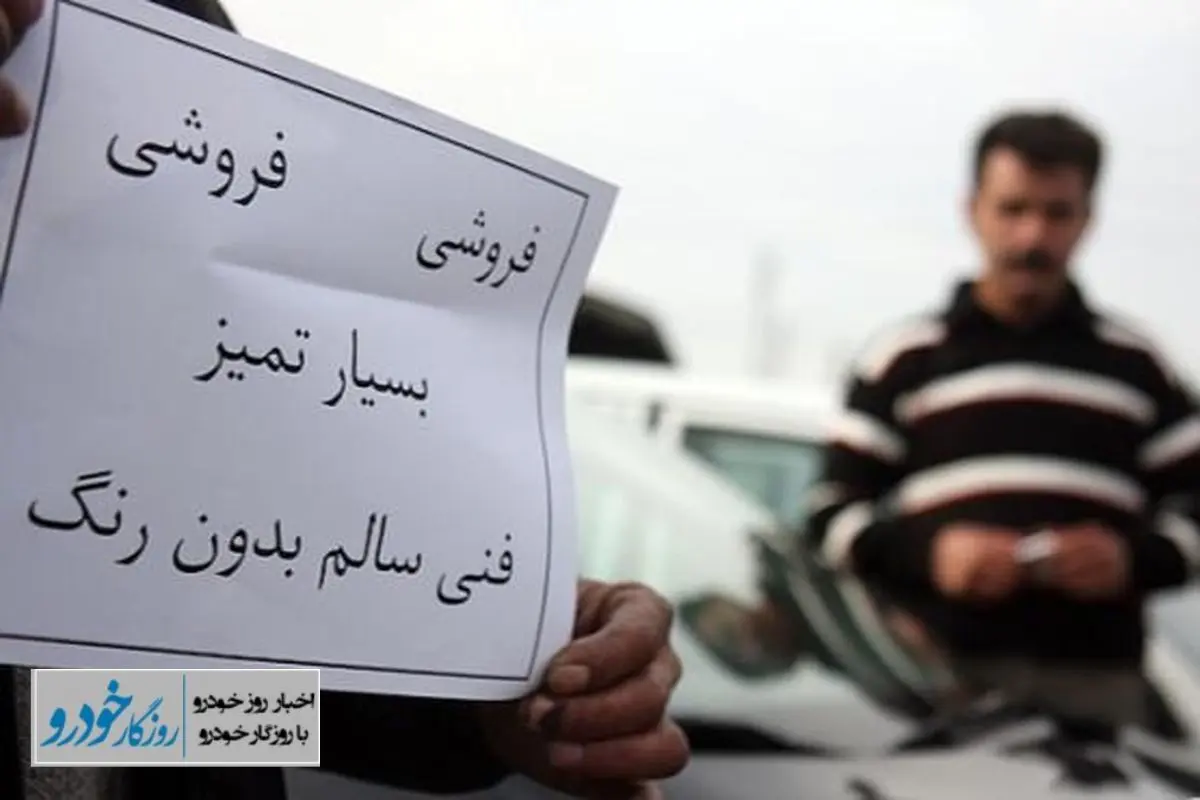 فروشی
فروشی
بسیار تمیز
فنی سالم بدون رنگ
روزگار خودرو
اخبار روز خودرو
با روزگار خودرو